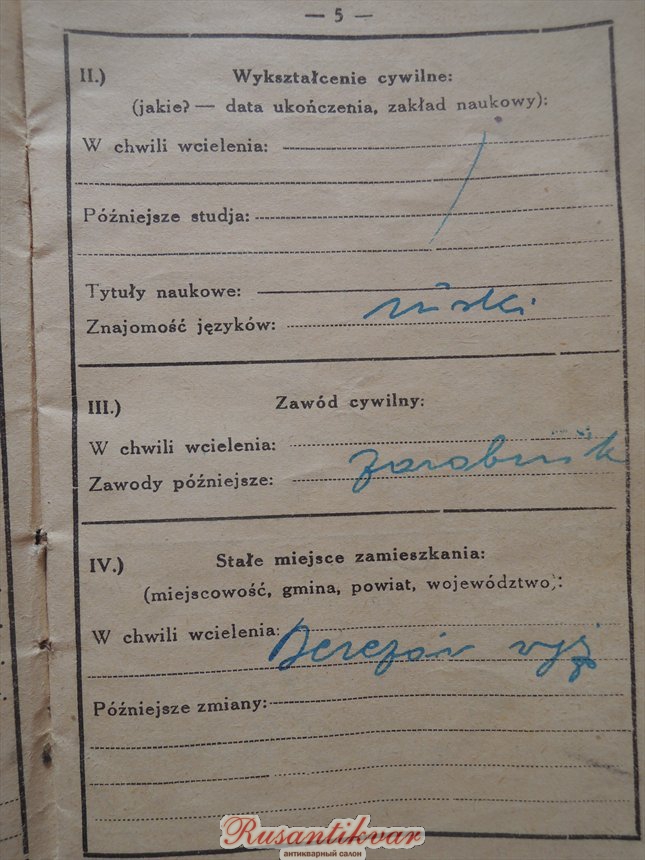 — 5 —
II.) Wykształcenie cywilne:
(jakie? — data ukończenia, zakład naukowy):
W chwili wcielenia:
Późniejsze studja:
Tytuły naukowe:
Znajomość języków: ruski
III.) Zawód cywilny:
W chwili wcielenia: zarobnik
Zawody późniejsze:
IV.) Stałe miejsce zamieszkania:
(miejscowość, gmina, powiat, województwo):
W chwili wcielenia: Berezów
Późniejsze zmiany:
Rusantikvar
антикварный салон